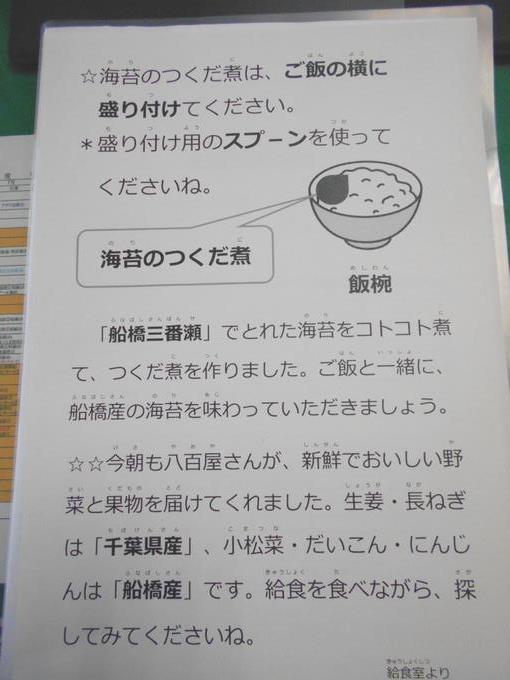 ☆海苔のつくだ煮は、ご飯の横に
盛り付けてください。
＊盛り付け用のスプーンを使って
くださいね。
海苔のつくだ煮
飯椀
「船橋三番瀬」でとれた海苔をコトコト煮
て、つくだ煮を作りました。ご飯と一緒に、
船橋産の海苔を味わっていただきましょう。
☆☆今朝も八百屋さんが、新鮮でおいしい野
菜と果物を届けてくれました。生姜・長ねぎ
は「千葉県産」、小松菜・だいこん・にんじ
んは「船橋産」です。給食を食べながら、探
してみてくださいね。
給食室より